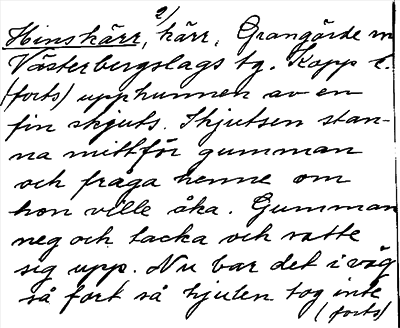 2)
Hinskärr, kärr, Grangärde sn
Västerbergslags tg. Kopp. l.
(forts) upphunnen av en
fin skjuts. Skjutsen stan-
na mittför gumman
och fråga henne om
hon ville åka. Gumman
neg och tacka och satte
sig upp. Nu bar det iväg
så fort så hjulen tog inte
(forts)